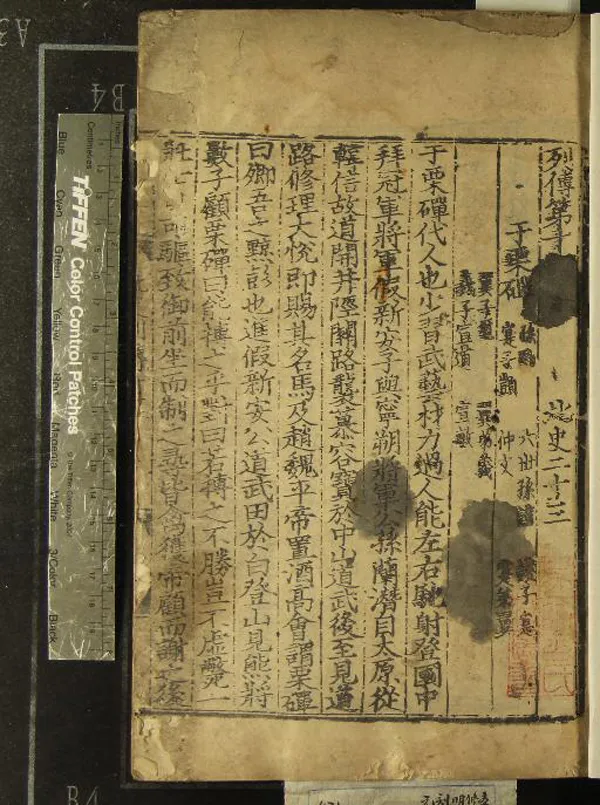 列傳第十 北史二十三
于栗磾 孫勁 六世孫謹 謹子寔
寔子顗 仲文 寔弟翼
翼子璽 翼弟義
義子宣道 宣敏
于栗磾代人也少習武藝材力過人能左右馳射登國中
拜冠軍將軍假新安子與寧朔將軍公孫蘭潛自太原從
韓信故道開井陘關路襲慕容寶於中山道武後至見道
路修理大悅即賜其名馬及趙魏平帝置酒高會謂栗磾
曰卿吾之黥彭也進假新安公道武田於白登山見熊將
數子顧栗磾曰能搏之乎對曰若搏之不勝豈不虛斃一
壯士 可驅致御前坐而制之尋皆禽獲帝顧而謝之後
TIFFEN Color Control Patches
© The Tiffen Company, 2007
Centimetres
Inches
Blue
Cyan
Green
Yellow
Red
Magenta
White
3/Color
Black
A3
B4
B4